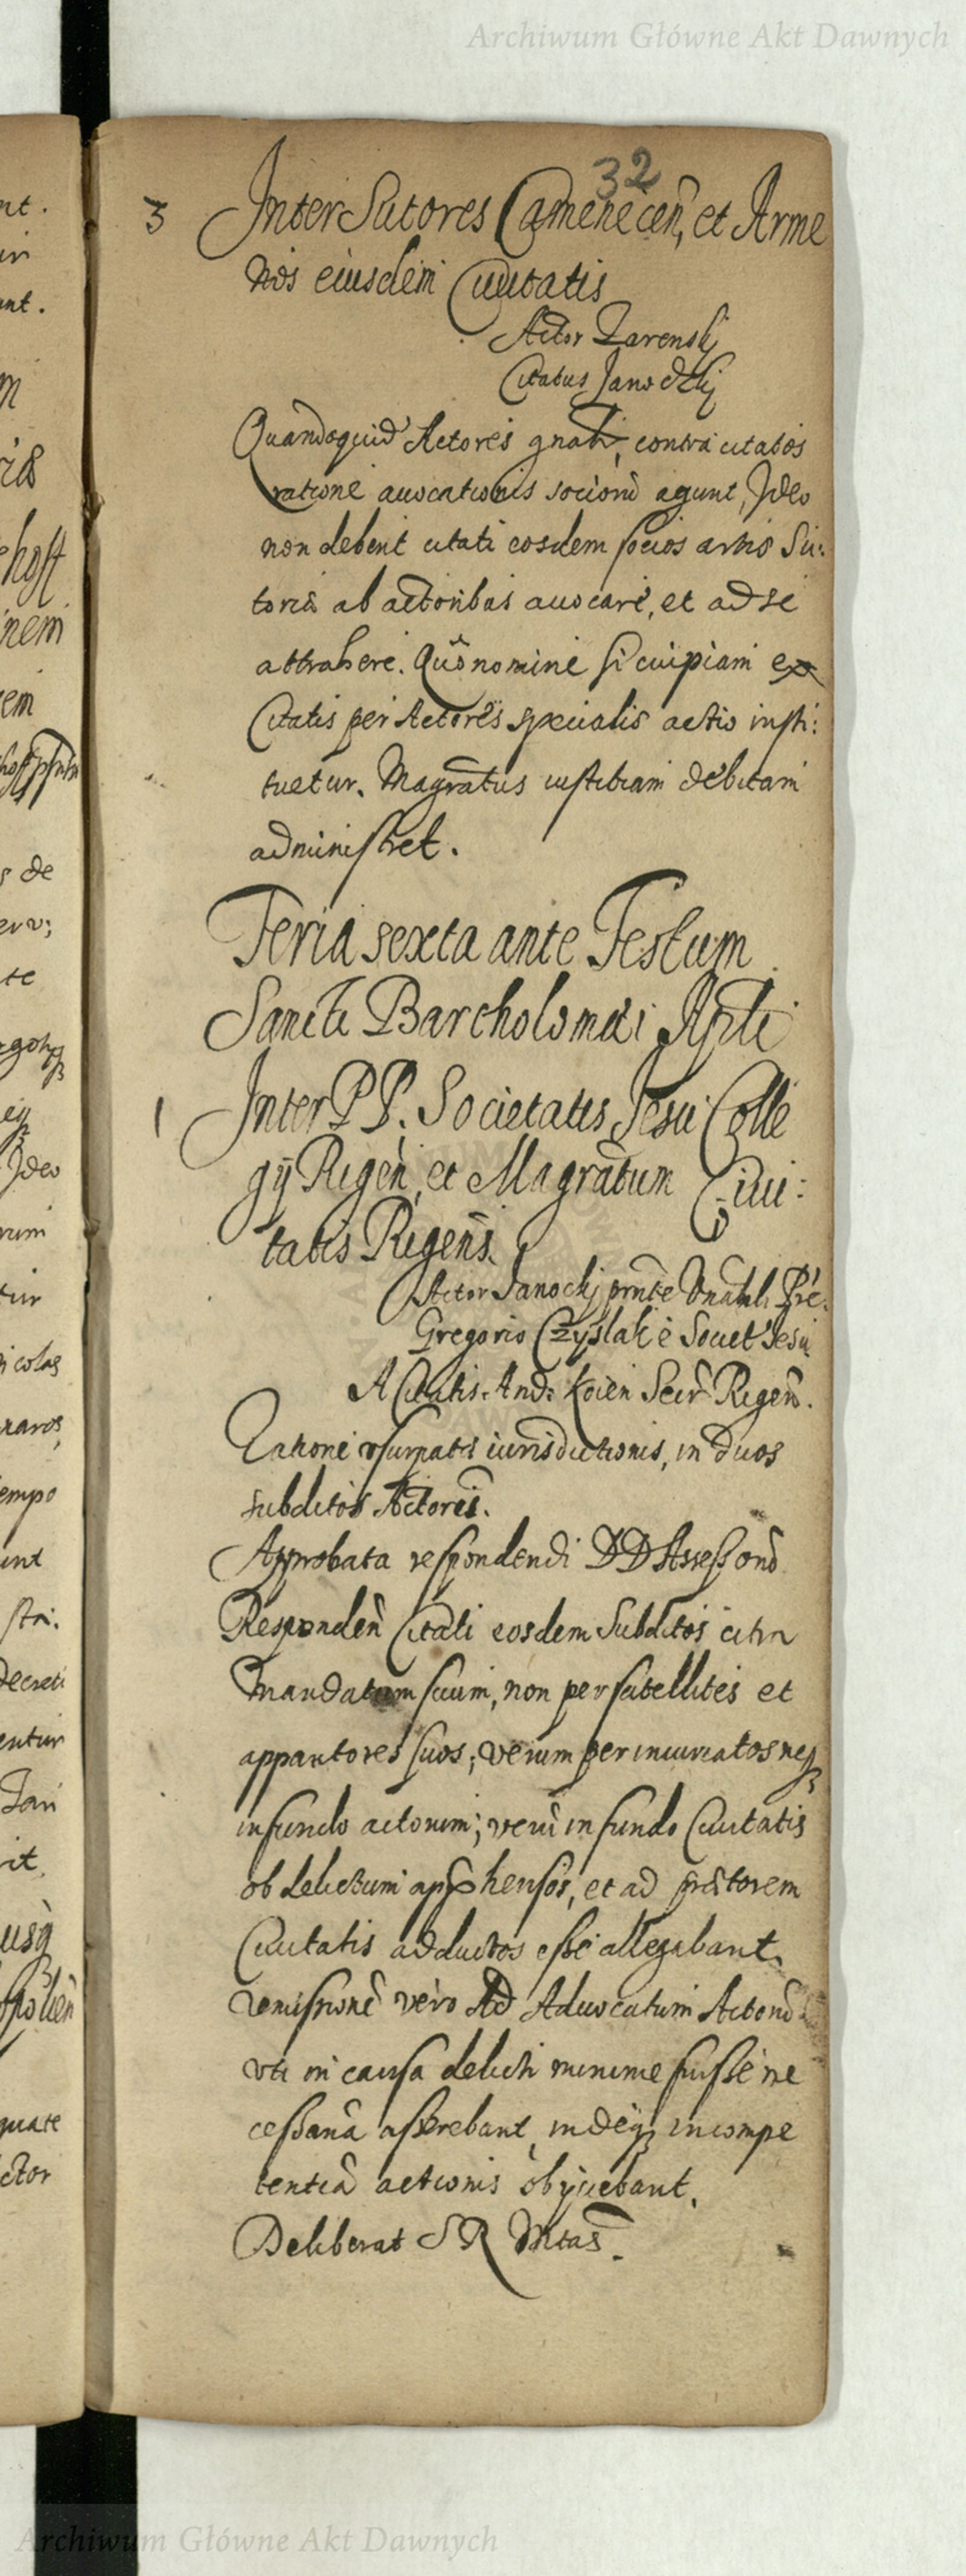 Archiwum Główne Akt Dawnych
32
3 Inter Sutores Camenecen, et Arme
nos eiusdem Ciuitatis
Actor Zarenskj
Citatus Janoczkj
Quandoquid Actores gnati, contra citatos
ratione auocationis sociorũ agunt, Ideo
non debent citati eosdem socios artis Su:
toriæ ab actoribus auocare, et ad se
attrahere. Quo nomine si cuipiam ex
Citatis per Actores specialis actio insti:
tuetur. Magratus iustitiam debitam
administret.
Feria sexta ante Festum
Sancti Bartholomæi Apli
1 Inter PP. Societatis Jesu Colle
gÿ Rigen, et Magratum Ciui:
tatis Rigens.
Actor Janockj prnte Vnabli Pre.
Gregorio Czyslak è Societ Jesu
A Citatis. And: Koien Secr Rigen.
Ratione vsurpatæ iurisdictionis, in duos
subditos Actoris.
Approbata respondendi DD Assessorũ
Responden Citati eosdem Subditos citra
mandatum suum, non per satellites et
apparitores suos; verum per incuratos neq
in fundo actorum; verũ in fundo Ciuitatis
ob delictum apprehensos, et ad prætorem
Ciuitatis adductos esse allegabant.
remissionẽ vero Ad Aduocatum Actorũ
vti in causa delicti minime fuisse ne
cessariã asserebant, indeq incompe
tentiã actionis obÿciebant.
Deliberat S R Mtas.
Archiwum Główne Akt Dawnych